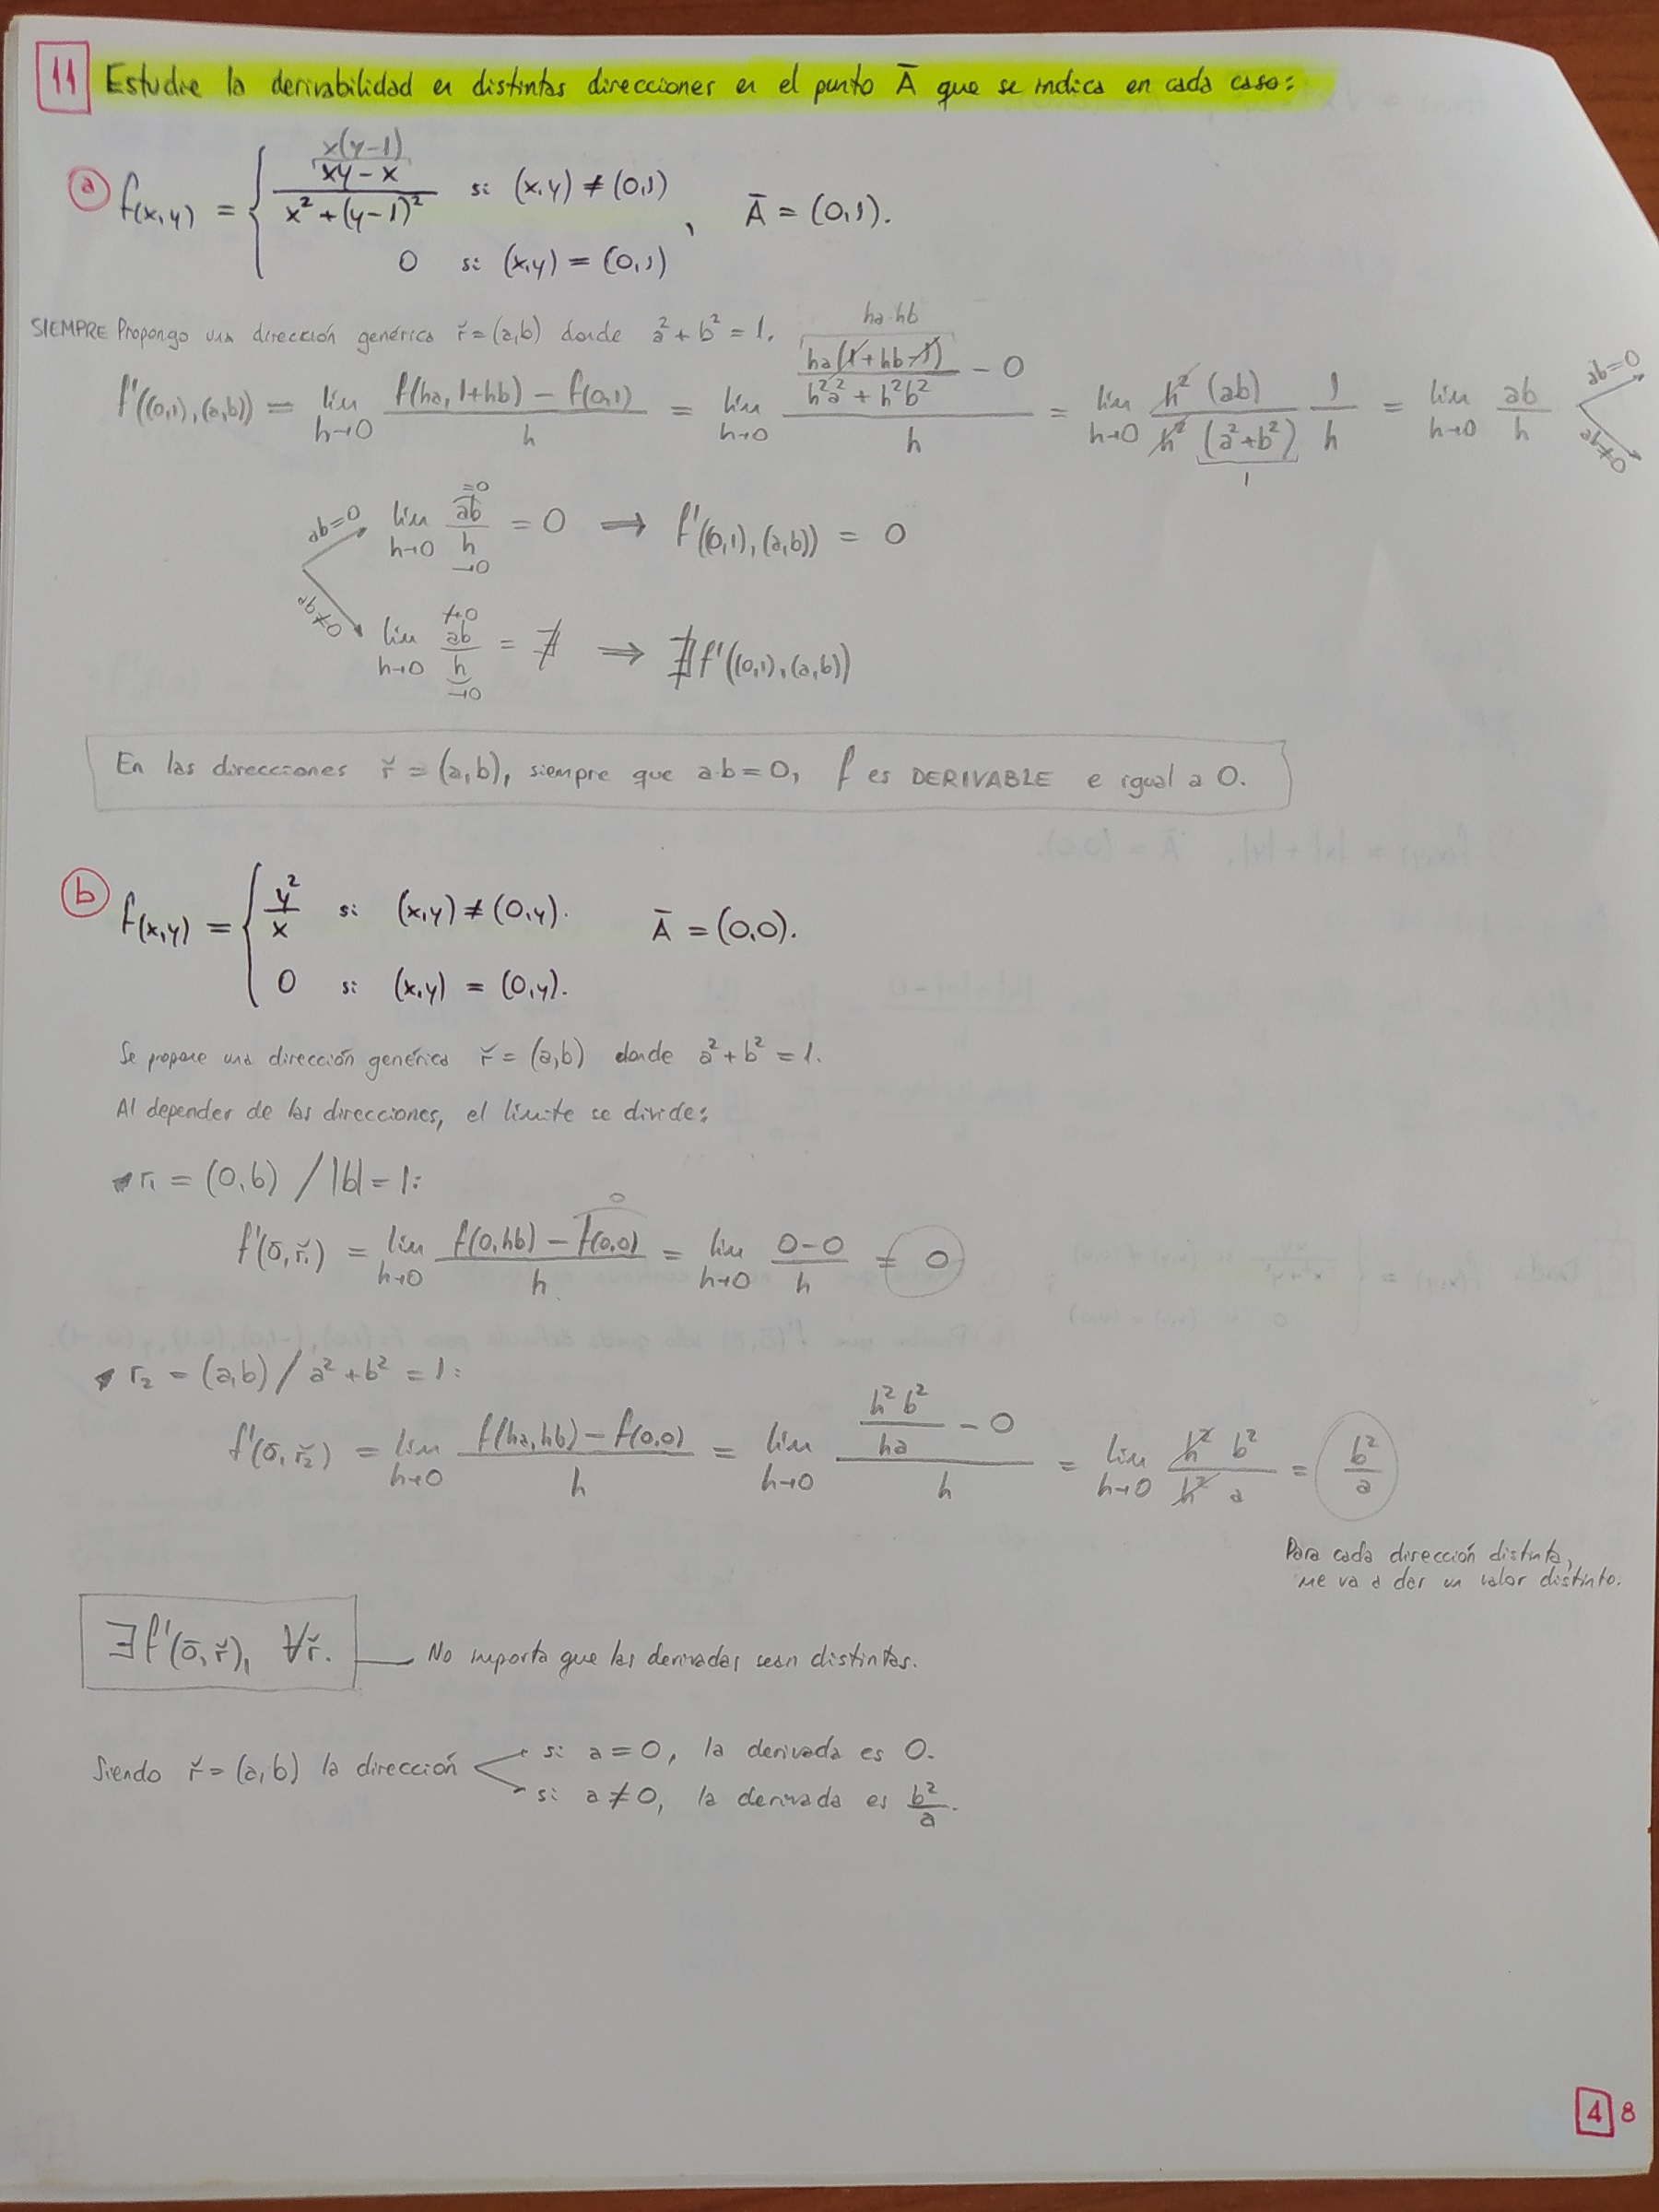 11 Estudie la derivabilidad en distintas direcciones en el punto Ā que se indica en cada caso:
x(y-1)
a f(x,y) = { xy - x / x² + (y-1)² si (x,y) ≠ (0,1)
0 si (x,y) = (0,1) , Ā = (0,1).
SIEMPRE Propongo una dirección genérica ř = (a,b) donde a² + b² = 1.
ha·hb
f'((0,1),(a,b)) = lím h→0 f(ha, 1+hb) - f(0,1) / h = lím h→0 (ha(1+hb-1) / h²a² + h²b² - 0) / h = lím h→0 h² (ab) / h² (a²+b²) 1/h = lím h→0 ab / h
1
ab=0
ab≠0
ab=0 lím h→0 ab / h = 0 ⟹ f'((0,1),(a,b)) = 0
=0
→0
ab≠0 lím h→0 ab / h = ∄ ⟹ ∄ f'((0,1),(a,b))
≠0
→0
En las direcciones ř = (a,b), siempre que a·b = 0, f es DERIVABLE e igual a 0.
b f(x,y) = { y² / x si (x,y) ≠ (0,y).
0 si (x,y) = (0,y). Ā = (0,0).
Se propone una dirección genérica ř = (a,b) donde a² + b² = 1.
Al depender de las direcciones, el límite se divide:
r₁ = (0,b) / |b| = 1:
0
f'(ō,ř₁) = lím h→0 f(0,hb) - f(0,0) / h = lím h→0 0-0 / h = 0
r₂ = (a,b) / a² + b² = 1:
f'(ō,ř₂) = lím h→0 f(ha,hb) - f(0,0) / h = lím h→0 (h²b² / ha - 0) / h = lím h→0 h² b² / h² a = b² / a
Para cada dirección distinta,
me va a dar un valor distinto.
∃ f'(ō,ř), ∀ř. No importa que las derivadas sean distintas.
Siendo ř = (a,b) la dirección
si a = 0, la derivada es 0.
si a ≠ 0, la derivada es b² / a.
4 8